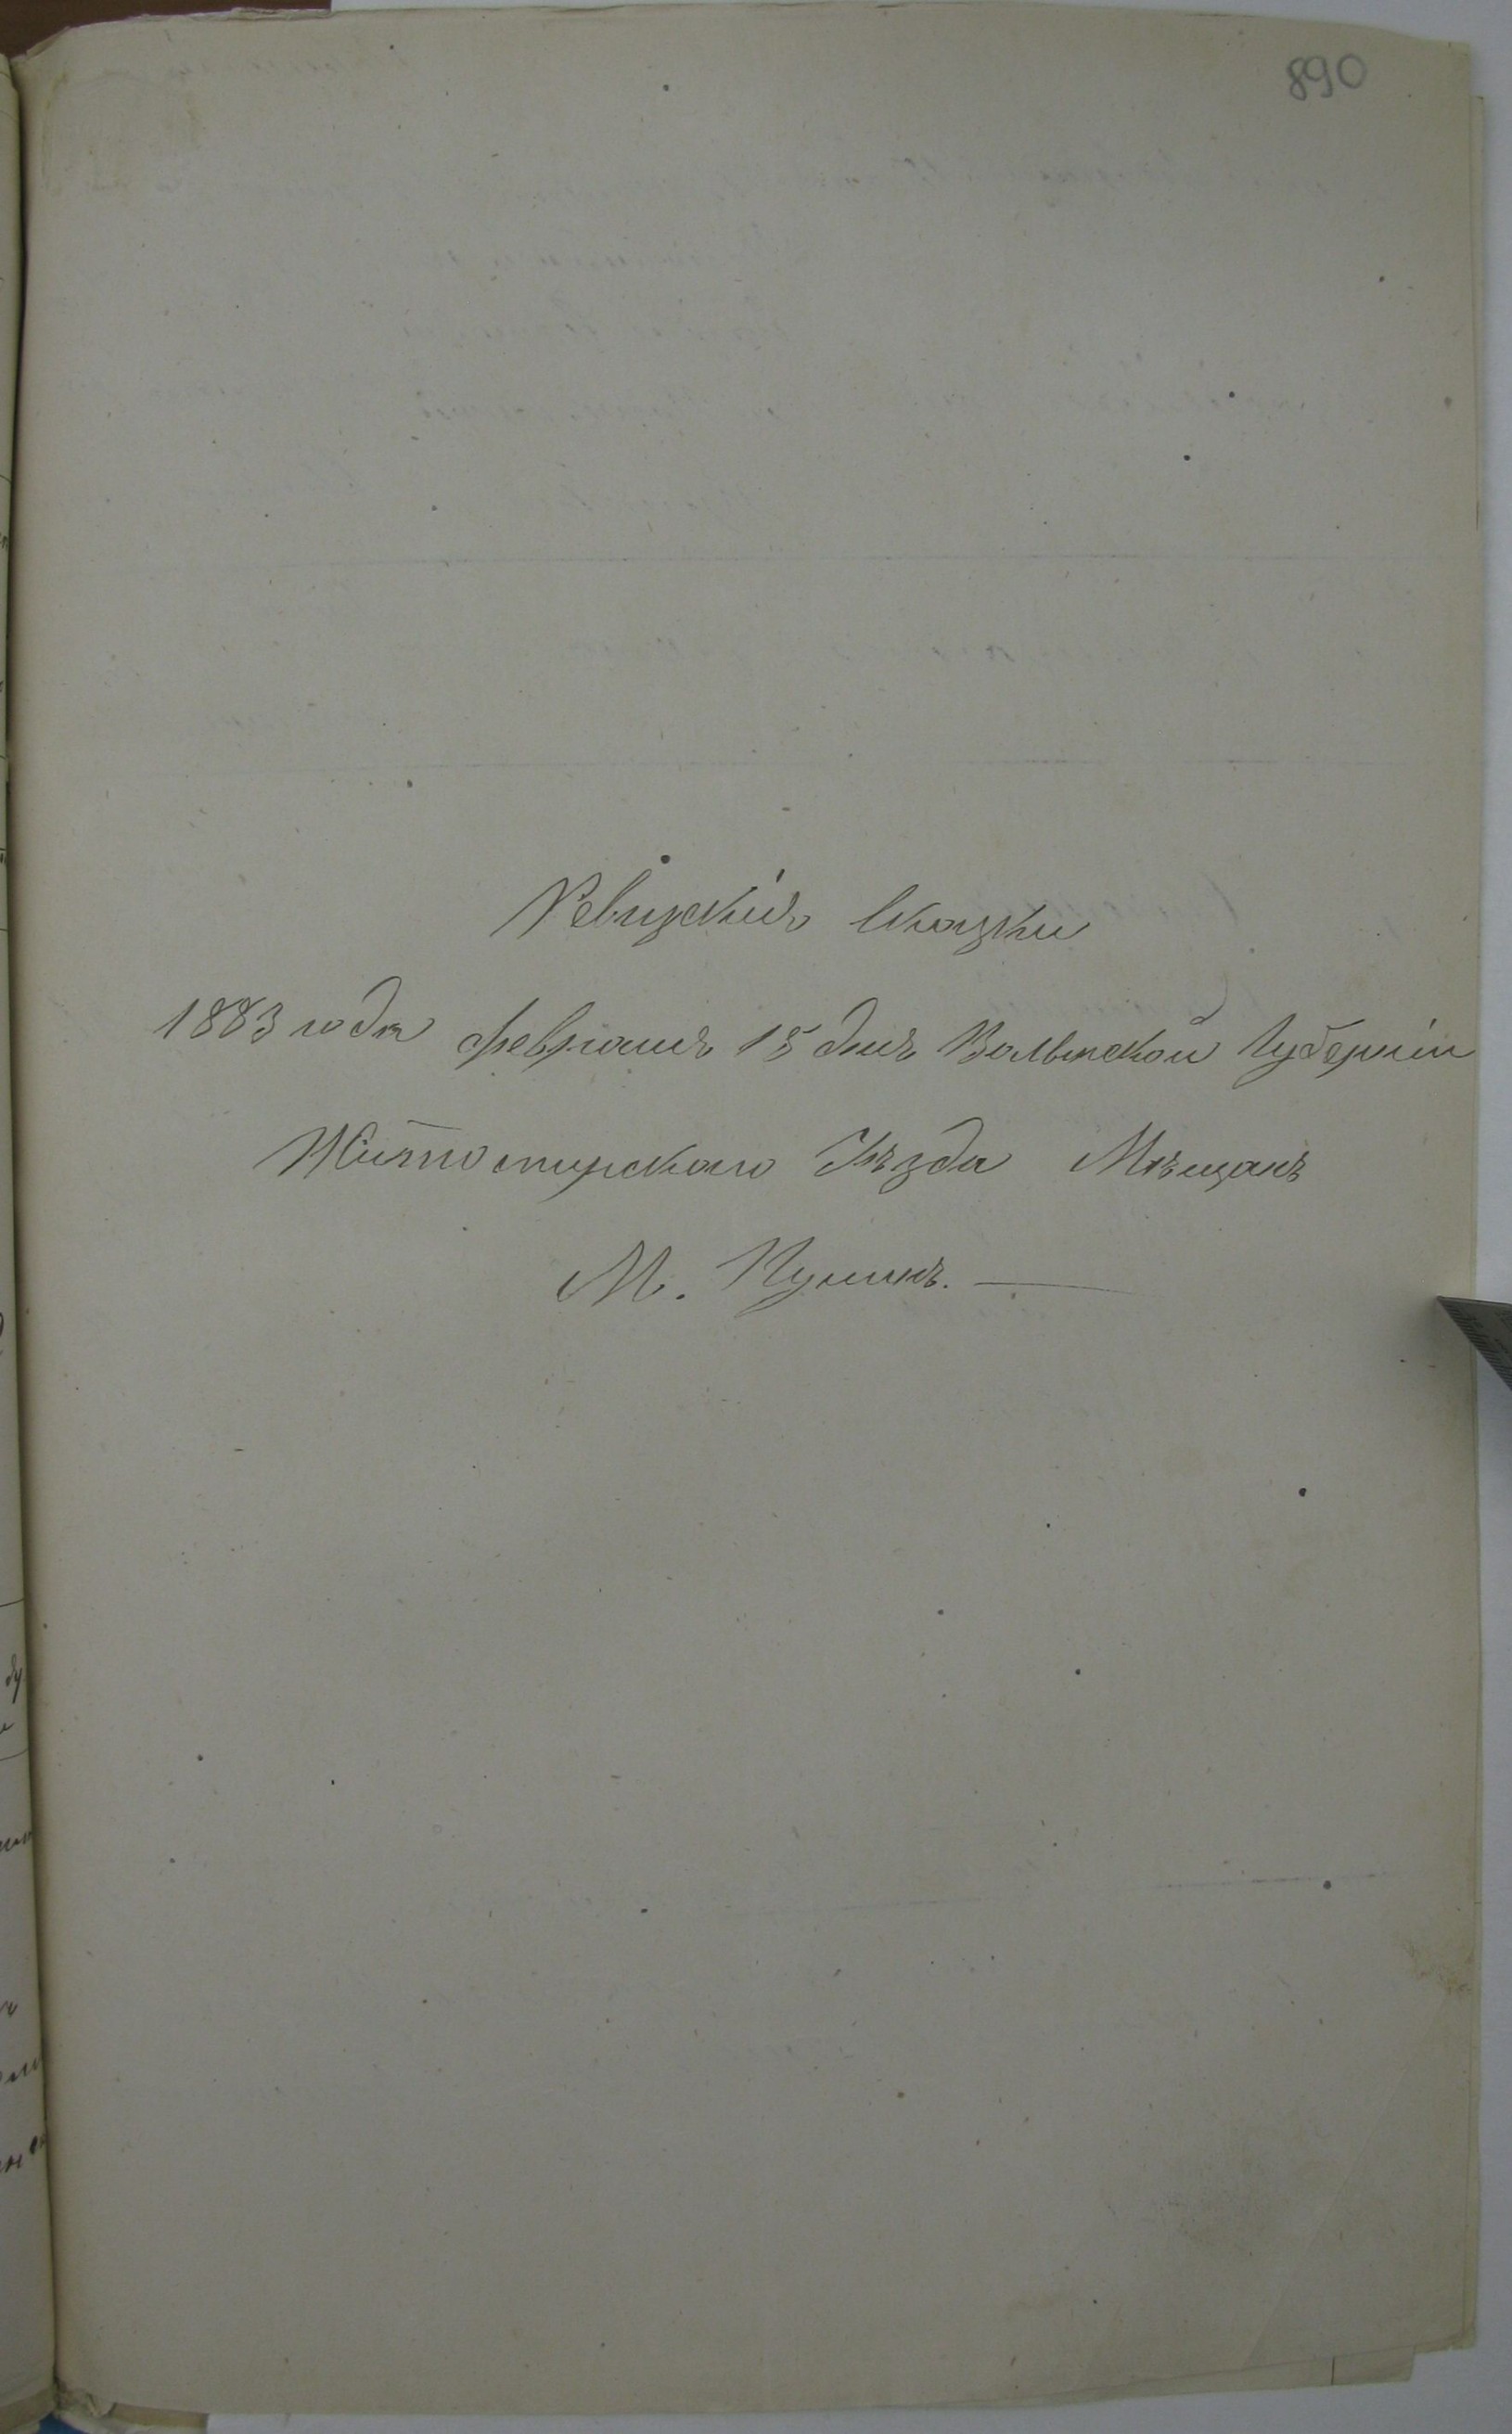 890
Ревизскія Сказки
1883 года февраля 15 дня Волынской Губерніи
Житомирскаго Уѣзда Мѣщанъ
М. Пулинъ.